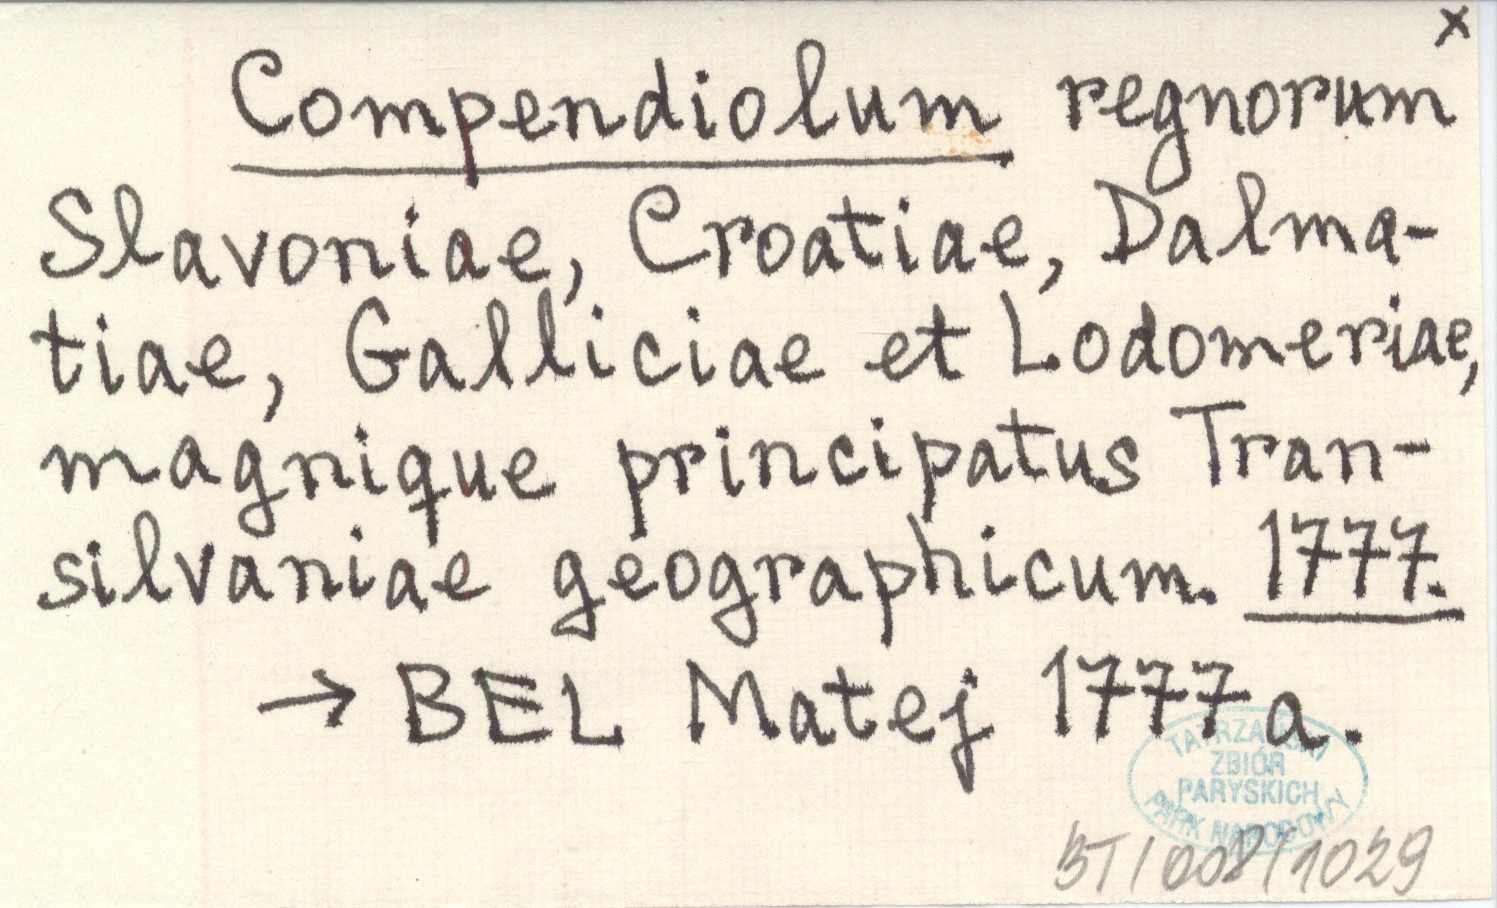 x
Compendiolum regnorum
Slavoniae, Croatiae, Dalma-
tiae, Galliciae et Lodomeriae,
magnique principatus Tran-
silvaniae geographicum. 1777.
→ BEL Matej 1777a.
TATRZAŃSKI
ZBIÓR
PARYSKICH
PARK NARODOWY
BT/008/1029